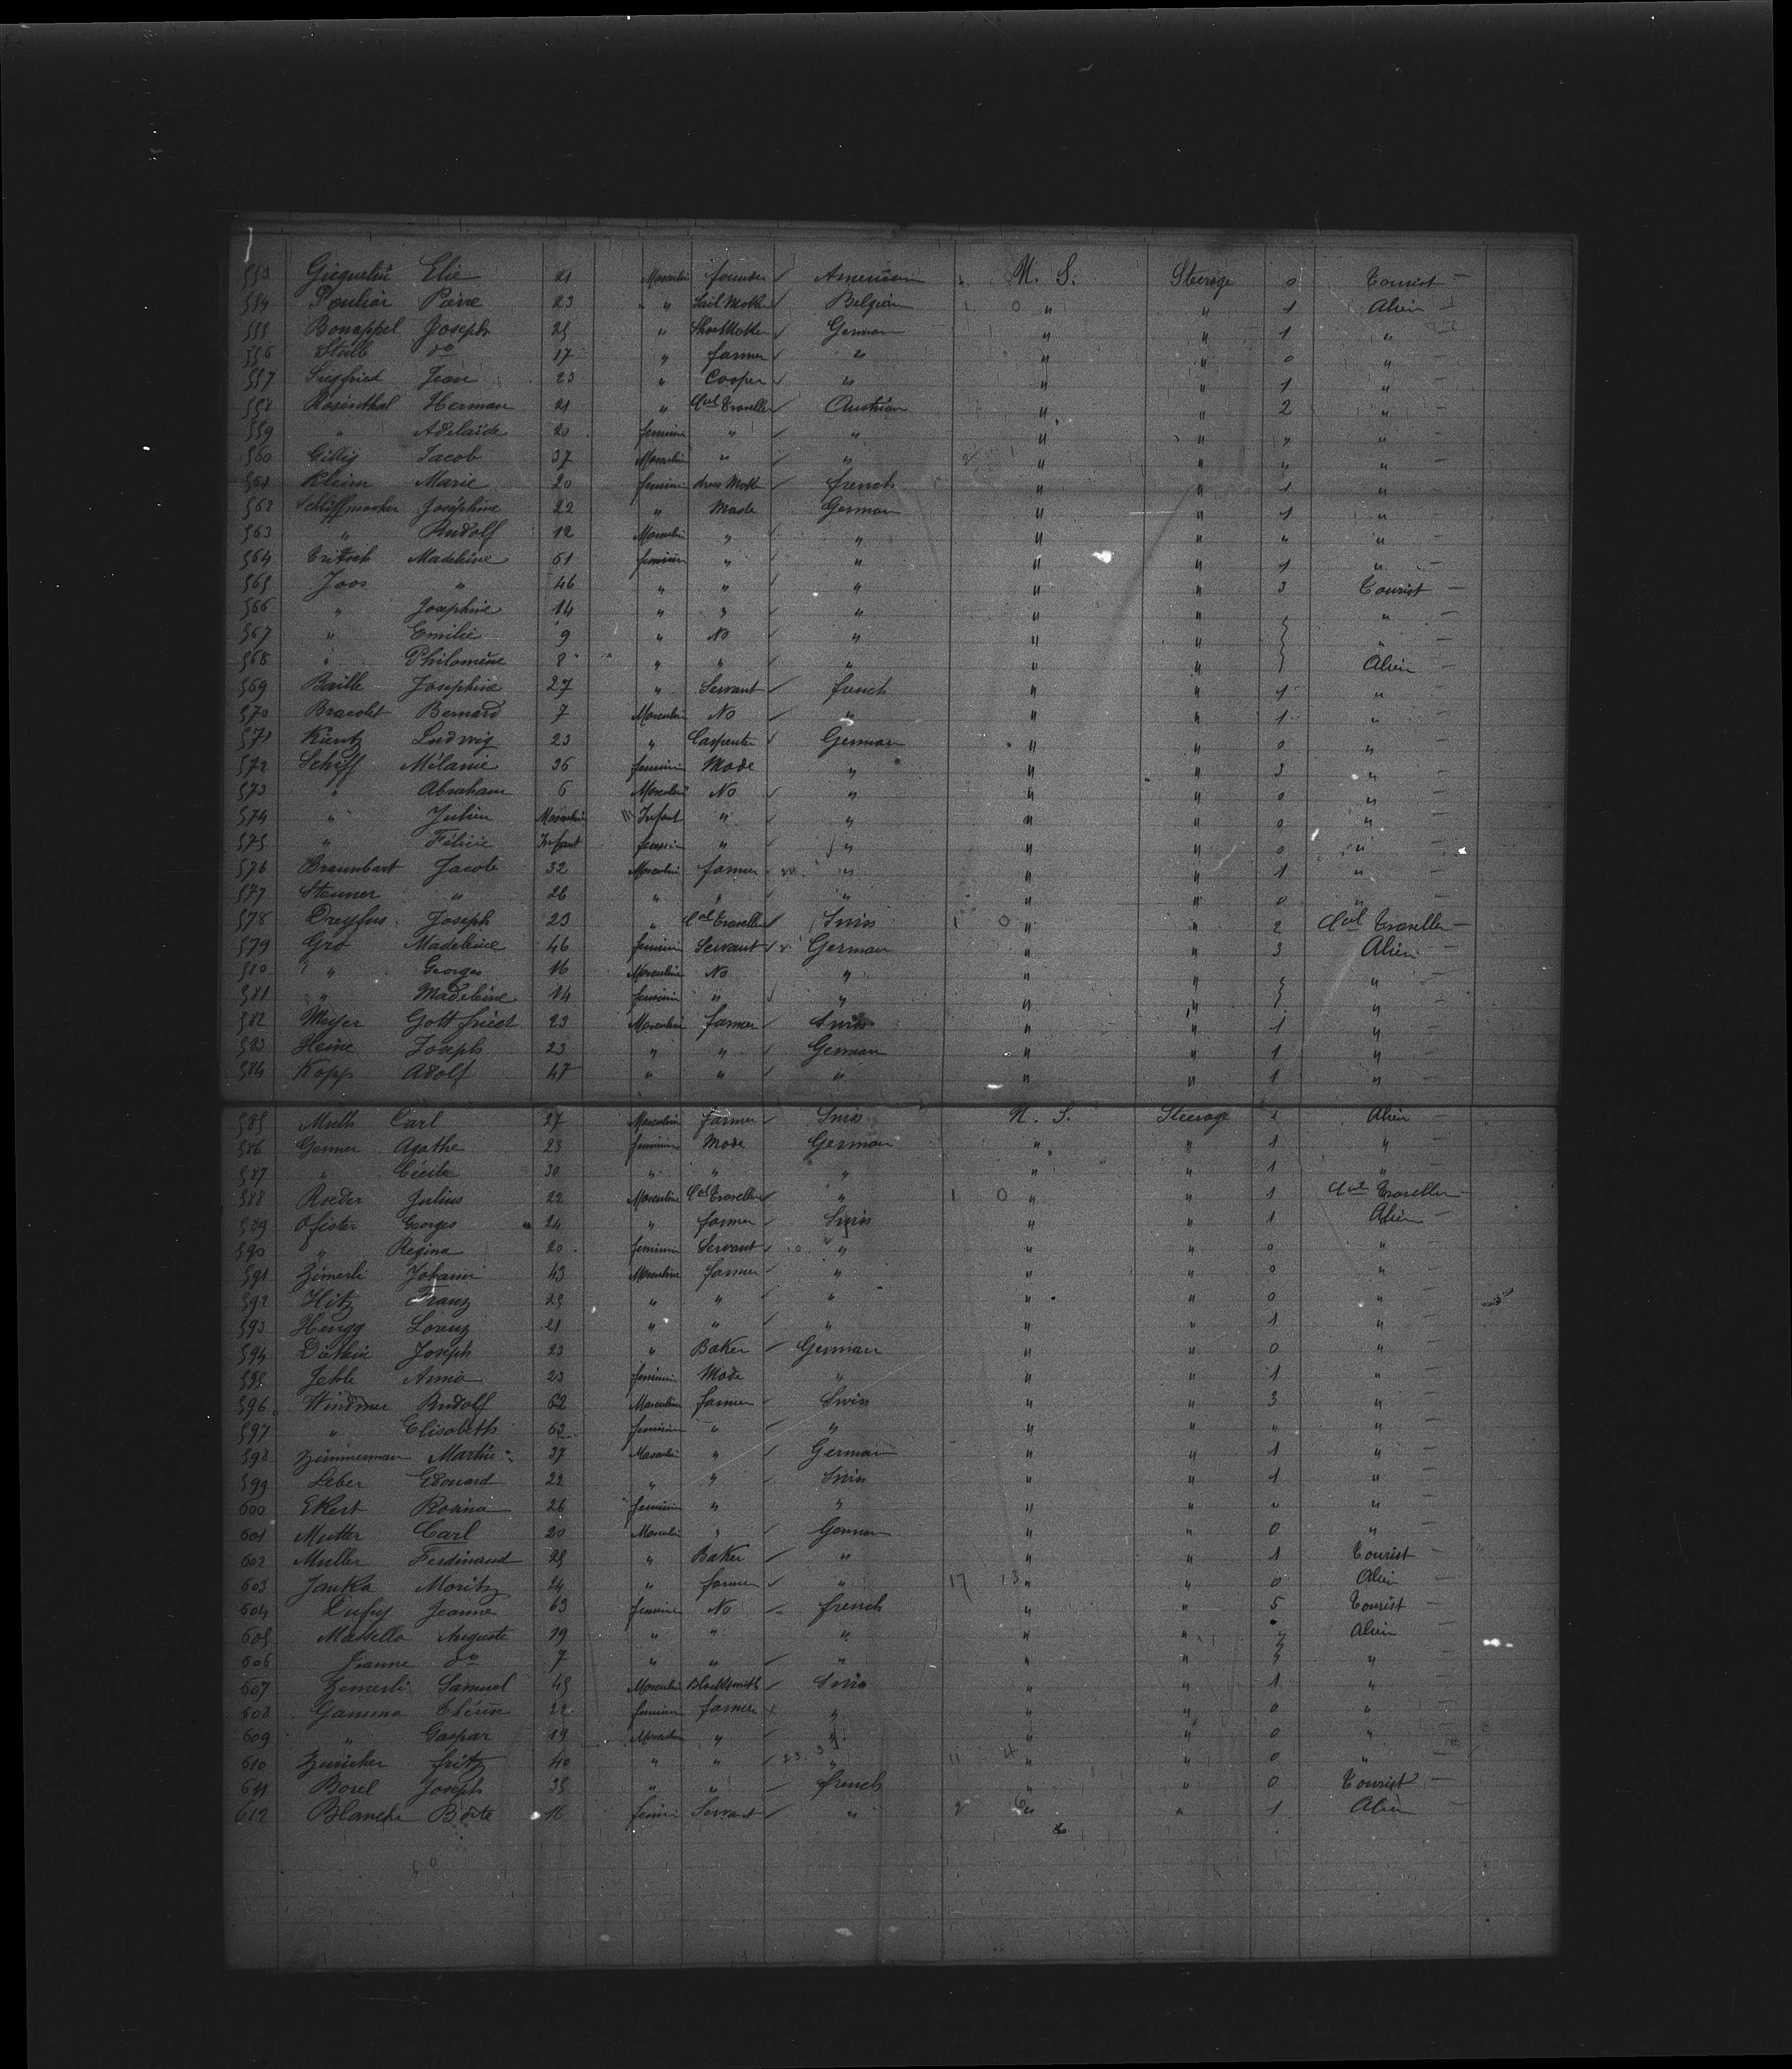 553 Gicquelin Elie 21 Masculin founder American U. S. Steerage 0 Tourist —
554 Pouliar Pierre 23 " Sail Maker Belgian 1 0 " " 1 Alien —
555 Bonappel Joseph 25 " Shoe Maker German " " 1 " —
556 Stulb do 17 " farmer " " " 0 " —
557 Siegfried Jean 23 " Cooper " " " 1 " —
558 Rosenthal Herman 21 " Cial Traveller Austrian " " 2 " —
559 " Adelaïde 20 feminin " " " " " " —
560 Gillig Jacob 37 Masculin " " 2 " " " " —
561 Kleim Marie 20 feminin dress Maker french " " 1 "
562 Schliffmacker Joséphine 22 " Made German " " 1 " —
563 " Rudolf 12 Masculin " " " " " " —
564 Tritsch Madeleine 61 feminin " " " " 1 " —
565 Joos " 46 " " " " " 3 Tourist —
566 " Josephine 14 " " " " " " " —
567 " Emilie 9 " No " " " " —
568 " Philomène 8 " " " " " Alien —
569 Baille Josephine 27 " Servant french " " 1 " —
570 Bracolet Bernard 7 Masculin No " " " 1 " —
571 Kientz Ludwig 23 " Carpenter German " " 0 " —
572 Schiff Mélanie 36 feminin Made " " " 3 " —
573 " Abraham 6 Masculin No " " " 0 " —
574 " Julien Masculin 11 Infant " " " " 0 " —
575 " Félicie Infant feminin " " " " 0 " —
576 Braunbart Jacob 32 Masculin farmer " " " 1 " —
577 Steuner " 26 " " " " " 0 " —
578 Dreyfus Joseph 23 " Cial Traveller Swiss 1 0 " " 2 Cial Traveller —
579 Gro Madeleine 46 feminin Servant German " " 3 Alien —
580 " Georges 16 Masculin No " " " " " —
581 " Madeleine 14 feminin " " " " " —
582 Meyer Gottfried 23 Masculin farmer Swiss " " 1 " —
583 Heine Joseph 23 " " German " " 1 " —
584 Kopp Adolf 47 " " " " " 1 " —
585 Muth Carl 27 Masculin farmer Swiss U. S. Steerage 1 Alien —
586 Genner Agathe 23 feminin Made German " " 1 " —
587 " Cécile 30 " " " " " 1 " —
588 Roeder Julius 22 Masculin Cial Traveller " 1 0 " " 1 Cial Traveller —
589 Pfister Georges 24 " farmer Swiss " " 1 Alien —
590 " Regina 20 feminin Servant " " " 0 " —
591 Zimerli Johann 43 Masculine farmer " " " 0 " —
592 Hitz Franz 25 " " " " " 0 " —
593 Hengg Lorenz 21 " " " " " 1 " —
594 Dietlin Joseph 23 " Baker German " " 0 " —
595 Jehle Anna 23 feminin Made " " " 1 " —
596 Windmer Rudolf 62 Masculin farmer Swiss " " 3 " —
597 " Elisabeth 63 feminin " " " " " " —
598 Zimmerman Martin 37 Masculin " German " " 1 " —
599 Leber Edouard 22 " " Swiss " " 1 " —
600 Ekert Rosina 26 feminin " " " " " " —
601 Mutter Carl 20 Masculin " German " " 0 " —
602 Muller Ferdinand 25 " Baker " " " 1 Tourist —
603 Janka Moritz 24 " farmer " 17 13 " " 0 Alien —
604 Dufey Jeanne 63 feminine No french " " 5 Tourist —
605 Massello Auguste 19 " " " " " " Alien —
606 Jeanne do 7 " " " " " " " —
607 Zemerli Samuel 45 Masculin Blacksmith Swiss " " 1 " —
608 Gamma Thérèse 22 feminin farmer " " " 0 " —
609 " Gaspar 19 Masculin " " " " 0 " —
610 Zuricher fritz 40 " " " 11 4 " " 0 " —
611 Borel Joseph 35 " " french " " 0 Tourist —
612 Blanche Berte 16 femin Servant " 2 6 " " 1 Alien —